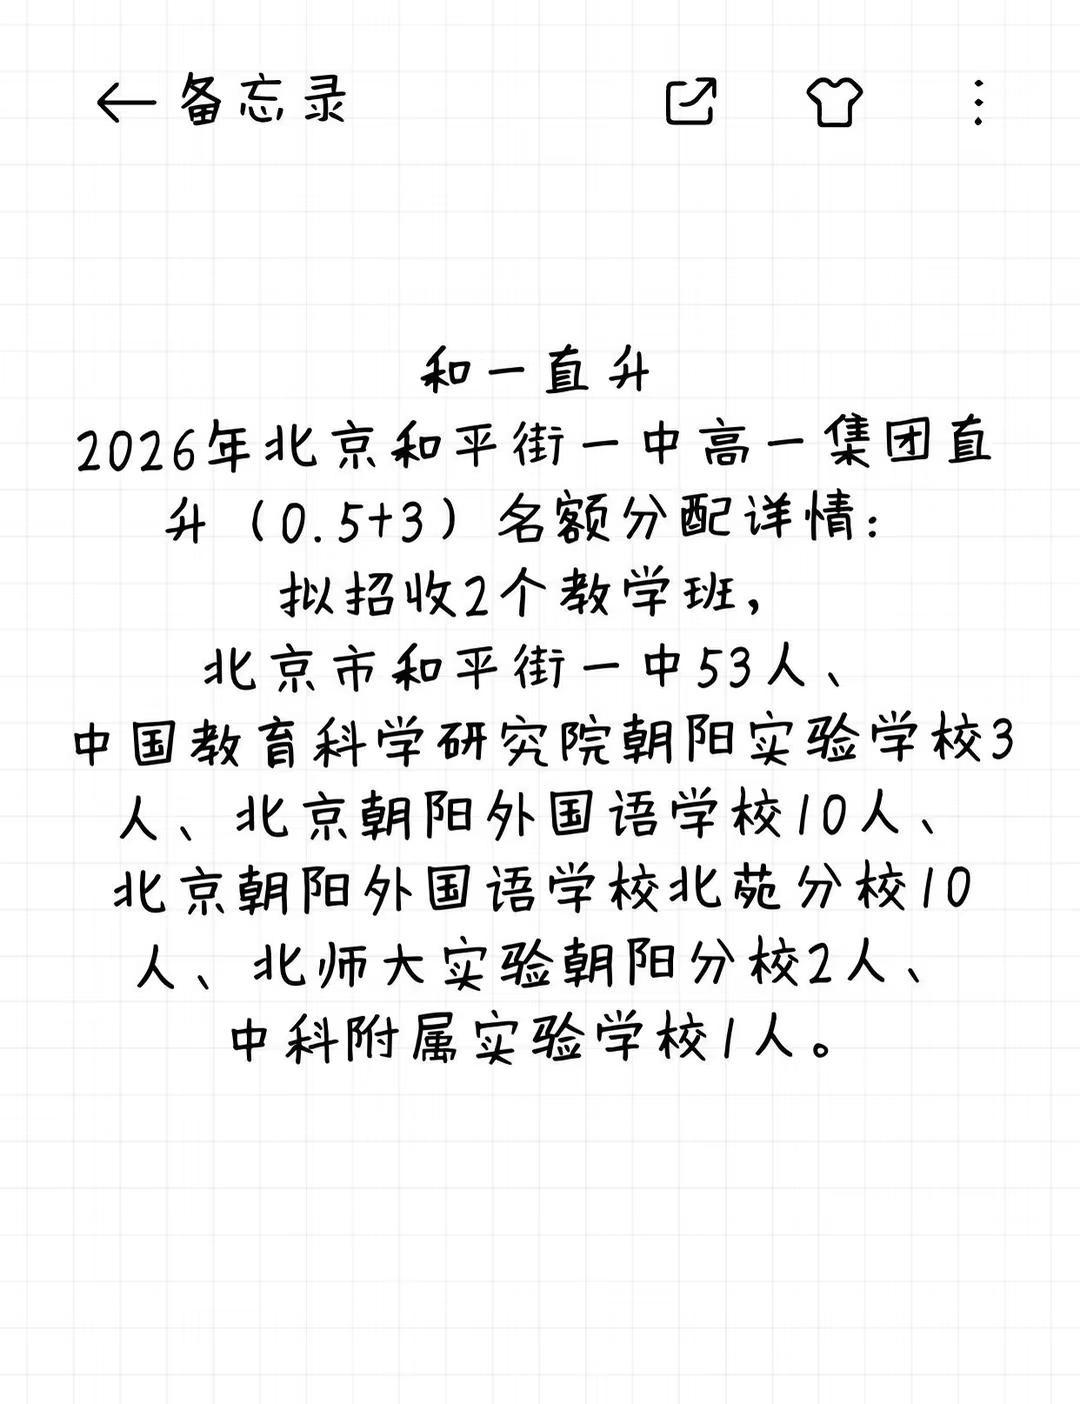 备忘录
和一直升
2026年北京和平街一中高一集团直
升（0.5+3）名额分配详情：
拟招收2个教学班，
北京市和平街一中53人、
中国教育科学研究院朝阳实验学校3
人、北京朝阳外国语学校10人、
北京朝阳外国语学校北苑分校10
人、北师大实验朝阳分校2人、
中科附属实验学校1人。